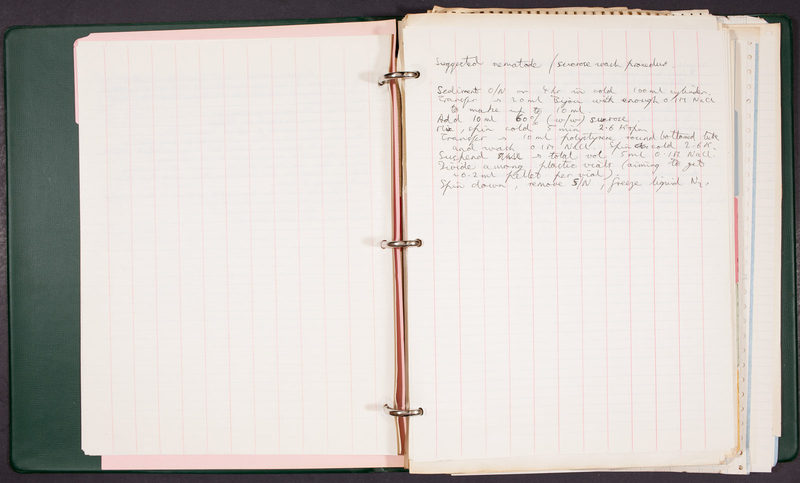 Suggested nematode / sucrose wash procedure.
Sediment O/N or 4hr in cold 100ml cylinder.
Transfer to 20ml Bijou with enough 0.1M NaCl
to make up to 10ml
Add 10ml 60% (w/w) sucrose.
Mix, spin cold 5 min 2.6K rpm
Transfer to 10ml polystyrene round bottomed tube
and wash 0.1M NaCl. Spin cold 2.6K.
Suspend in total vol. 5ml 0.1M NaCl.
Divide among plastic vials (aiming to get
~0.2ml pellet per vial).
Spin down, remove S/N, freeze liquid N2.